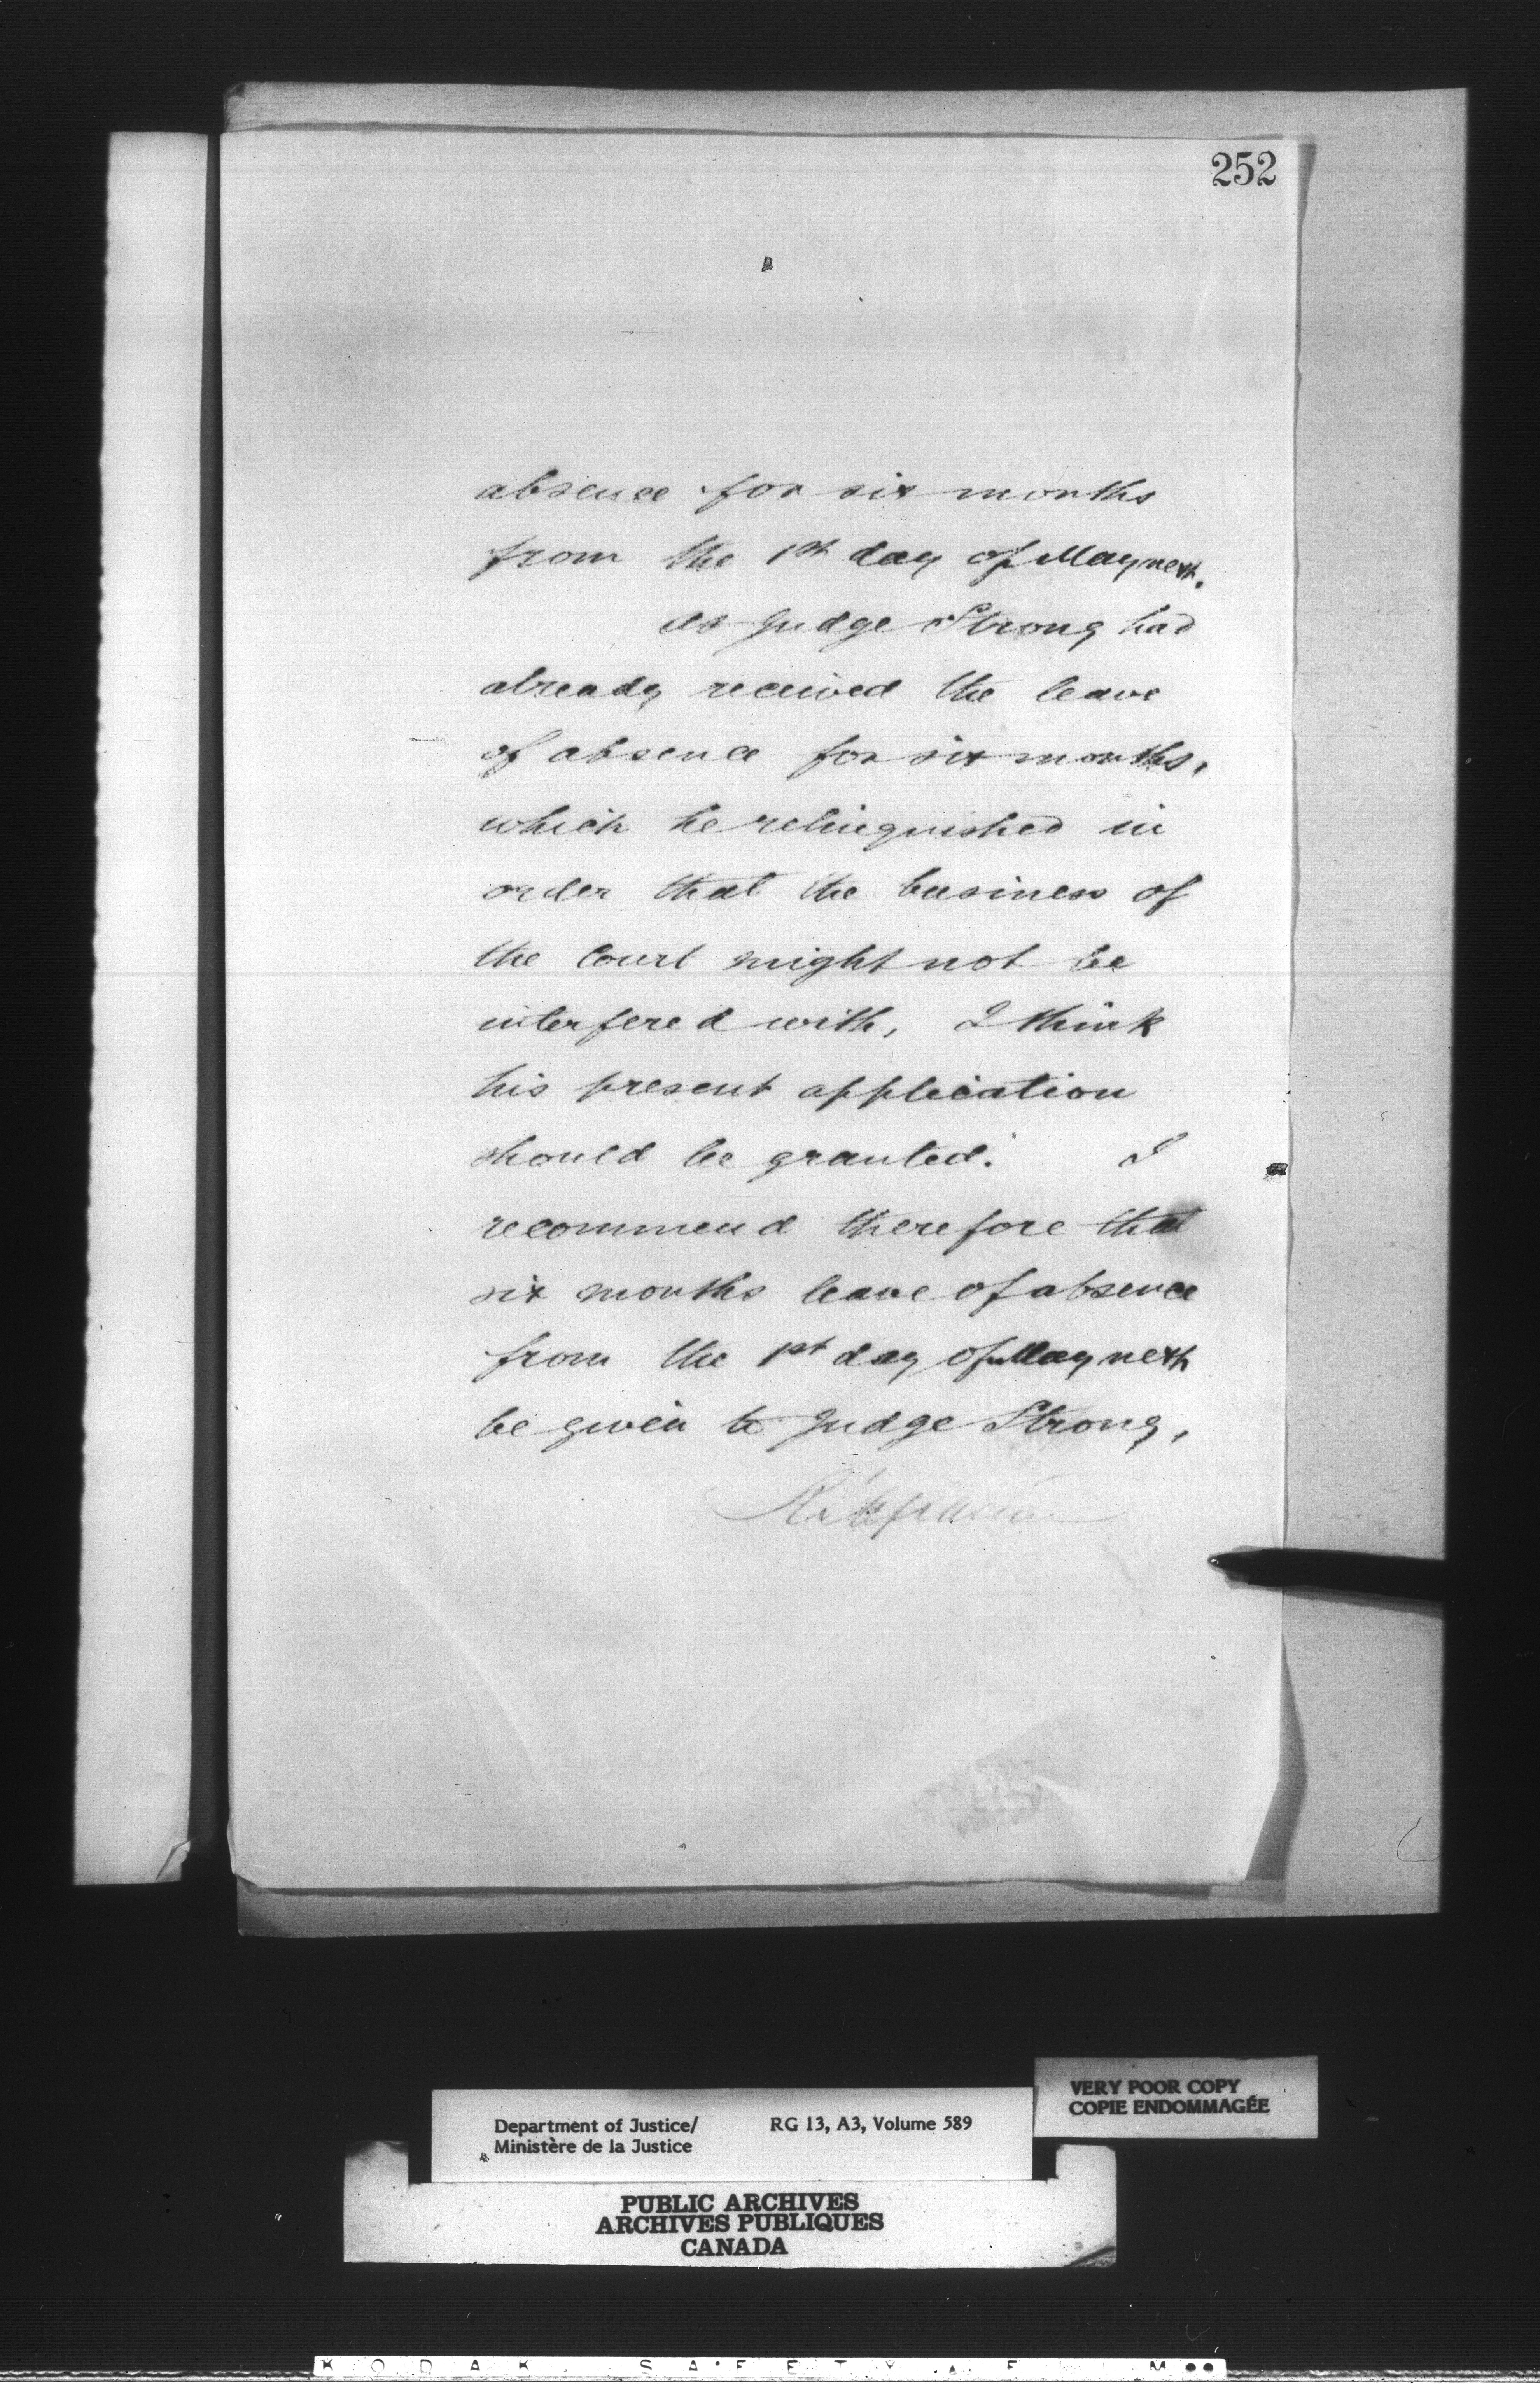 252
absence for six months
from the 1st day of May next.
As Judge Strong had
already received the leave
of absence for six months,
which he relinquished in
order that the business of
the Court might not be
interfered with, I think
his present application
should be granted. I
recommend therefore that
six months leave of absence
from the 1st day of May next
be given to Judge Strong,
VERY POOR COPY
COPIE ENDOMMAGÉE
Department of Justice/ RG 13, A3, Volume 589
Ministère de la Justice
PUBLIC ARCHIVES
ARCHIVES PUBLIQUES
CANADA
KODAK SAFETY FILM